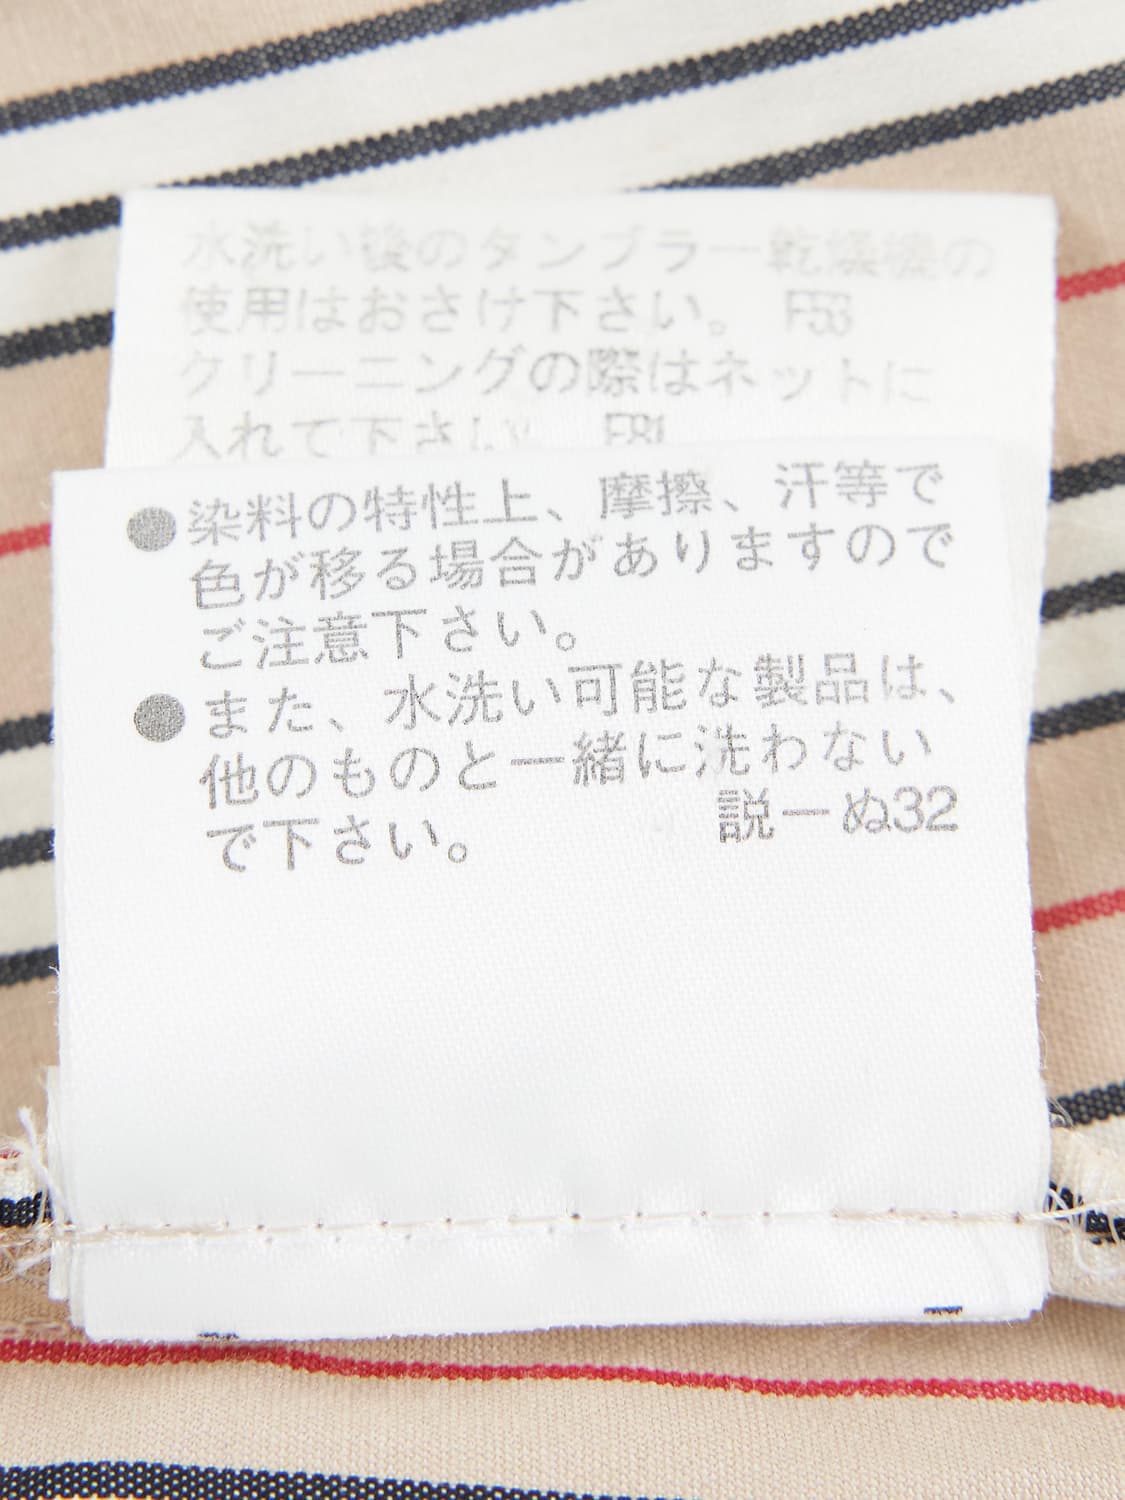 水洗い後のタンブラー乾燥機の
使用はおさけ下さい。 F53
クリーニングの際はネットに
入れて下さい。 F81
●染料の特性上、摩擦、汗等で
色が移る場合がありますので
ご注意下さい。
●また、水洗い可能な製品は、
他のものと一緒に洗わない
で下さい。 説ーぬ32